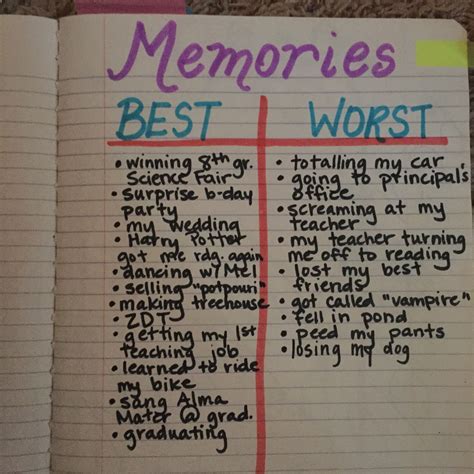 Memories
BEST
• winning 8th gr.
Science Fair
• surprise b-day
party
• my wedding
• Harry Potter
got me rdg. again
• dancing w/ Mel
• selling "potpouri"
• making treehouse
• ZDT
• getting my 1st
teaching job
• learned to ride
my bike
• sang Alma
Mater @ grad.
• graduating
WORST
• totalling my car
• going to principal's
office
• screaming at my
teacher
• my teacher turning
me off to reading
• lost my best
friends
• got called "vampire"
• fell in pond
• peed my pants
• losing my dog